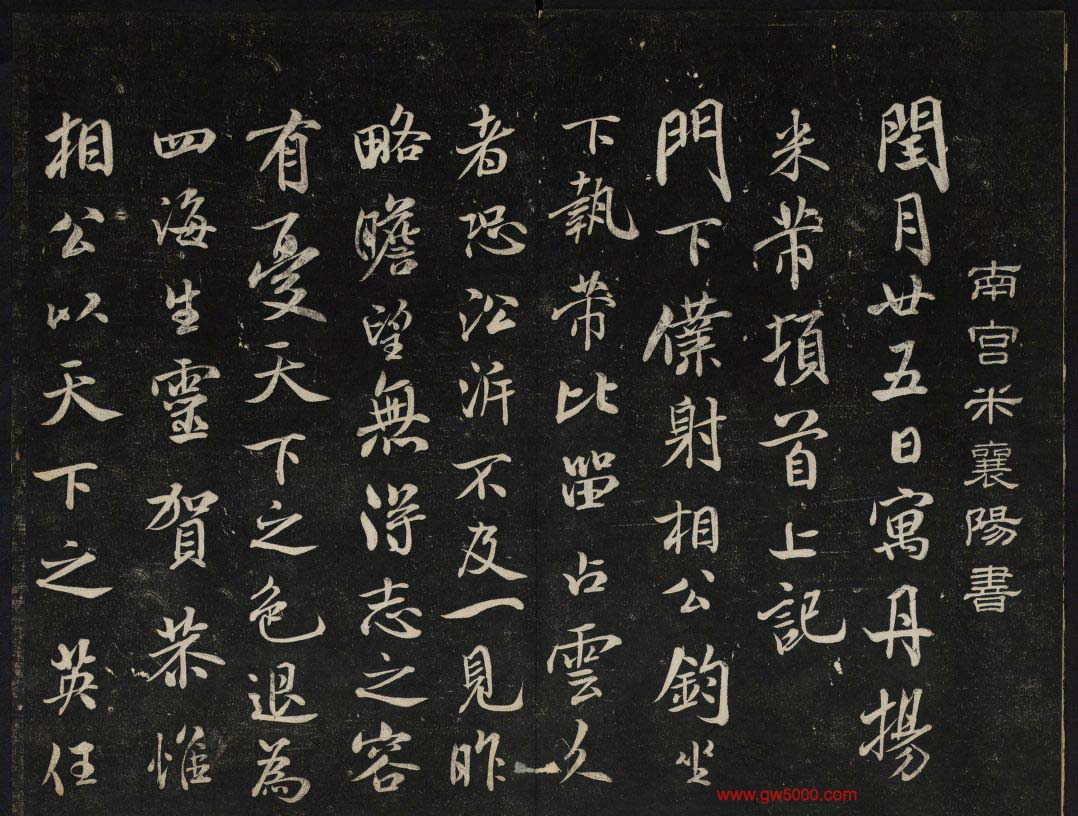 南宫米襄陽書
閏月廿五日寓丹揚
米芾頓首上記
門下僕射相公鈞坐
下執芾比留占雲久
者恐沿泝不及一見昨
略瞻望無得志之容
有憂天下之色退為
四海生靈賀恭惟
相公以天下之英任
www.gw5000.com